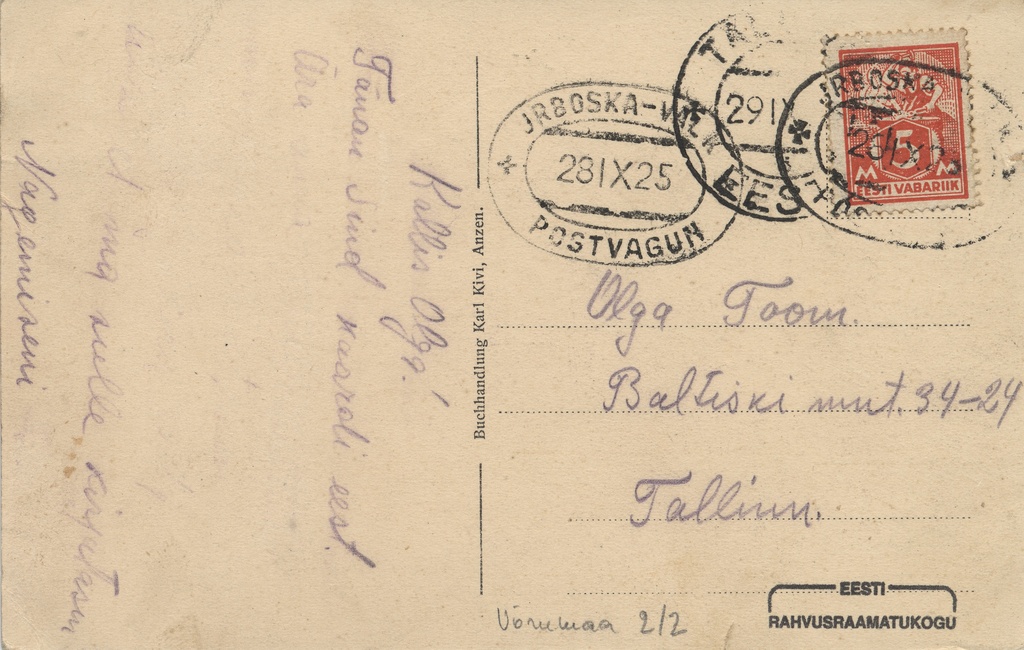 Kallis Olga!
Tänan Sind kaardi eest
Ära
ma sulle kirjutasin
Nägemiseni
Buchhandlung Karl Kivi, Anzen.
JRBOSKA-VALK
28 IX 25
POSTVAGUN
TAL
29 IX
EES
JRBOSKA
28 IX 2
POS
5
M M
EESTI VABARIIK
Olga Toom.
Baltiski mnt. 34-24
Tallinn.
Võrumaa 2/2
EESTI
RAHVUSRAAMATUKOGU